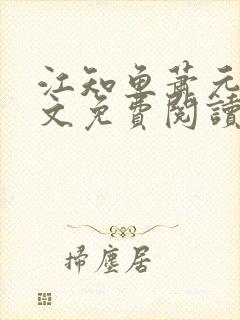 江知魚蕭元
文免費閱讀
掃塵居